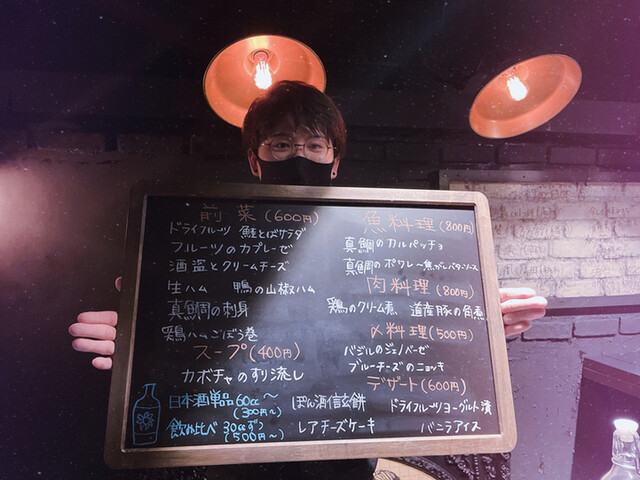 前菜(600円)
ドライフルーツ 鮭とばサラダ
フルーツのカプレーゼ
酒盗とクリームチーズ
生ハム 鴨の山椒ハム
真鯛の刺身
鶏ハムごぼう巻
スープ(400円)
カボチャのすり流し
日本酒単品60cc〜
(300円〜)
飲み比べ 30ccずつ
(500円〜)
魚料理(800円)
真鯛のカルパッチョ
真鯛のポワレ〜焦がしバターソース
肉料理(800円)
鶏のクリーム煮 道産豚の角煮
〆料理(500円)
バジルのジェノバーゼ
ブルーチーズのニョッキ
デザート(600円)
ぽん酒信玄餅 ドライフルーツヨーグルト漬
レアチーズケーキ バニラアイス